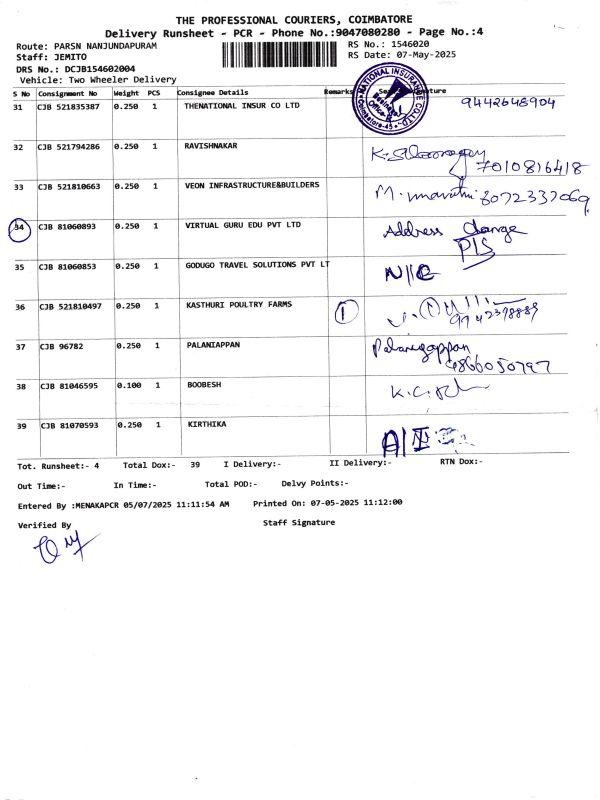 THE PROFESSIONAL COURIERS, COIMBATORE
Delivery Runsheet - PCR - Phone No.:9047080280 - Page No.:4
Route: PARSN NANJUNDAPURAM
RS No.: 1546020
Staff: JEMITO
RS Date: 07-May-2025
DRS No.: DCJB154602004
Vehicle: Two Wheeler Delivery
S No Consignment No Weight PCS Consignee Details Remarks Seal Signature
31 CJB 521835387 0.250 1 THENATIONAL INSUR CO LTD 9442648904
NATIONAL INSURANCE CO.LTD.
Coimbatore-45
32 CJB 521794286 0.250 1 RAVISHNAKAR
7010816418
33 CJB 521810663 0.250 1 VEON INFRASTRUCTURE&BUILDERS 8072337069
34 CJB 81060893 0.250 1 VIRTUAL GURU EDU PVT LTD Address Change
PIS
35 CJB 81060853 0.250 1 GODUGO TRAVEL SOLUTIONS PVT LT N/C
36 CJB 521810497 0.250 1 KASTHURI POULTRY FARMS 1
37 CJB 96782 0.250 1 PALANIAPPAN
38 CJB 81046595 0.100 1 BOOBESH
39 CJB 81070593 0.250 1 KIRTHIKA
Tot. Runsheet:- 4 Total Dox:- 39 I Delivery:- II Delivery:- RTN Dox:-
Out Time:- In Time:- Total POD:- Delvy Points:-
Entered By :MENAKAPCR 05/07/2025 11:11:54 AM Printed On: 07-05-2025 11:12:00
Verified By Staff Signature